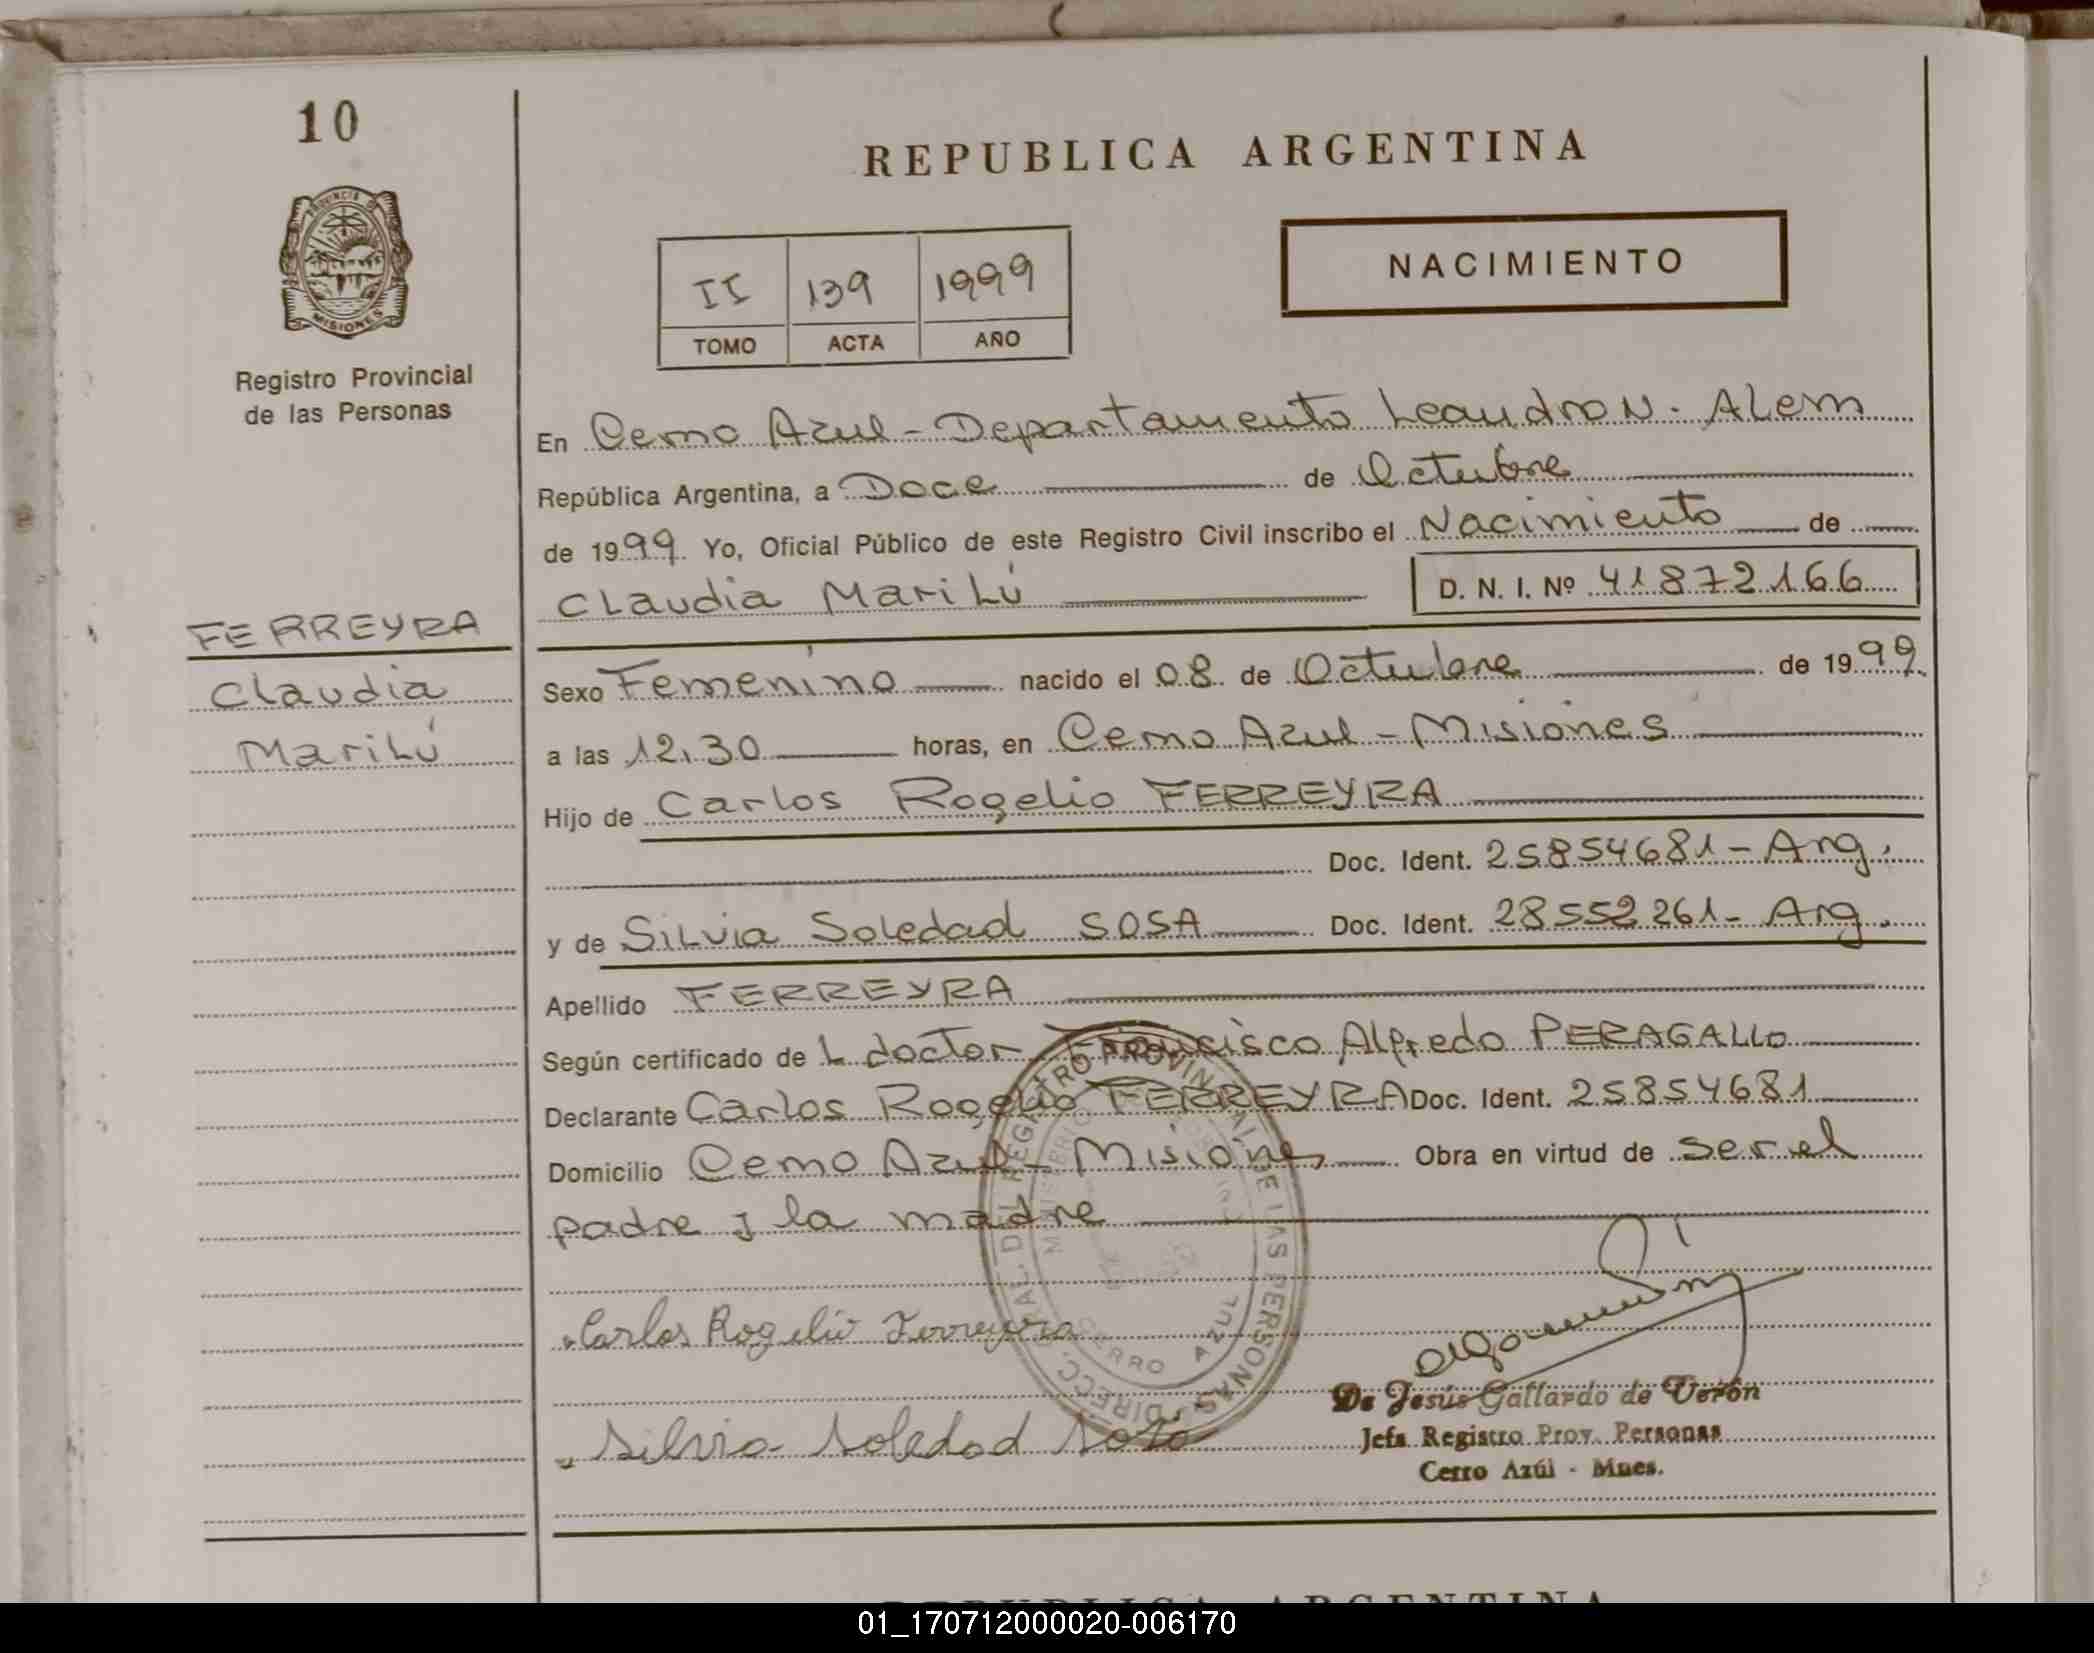 10
REPUBLICA ARGENTINA
PROVINCIA D
MISIONES
NACIMIENTO
II 139 1999
TOMO ACTA AÑO
Registro Provincial
de las Personas
En Cerro Azul - Departamento Leandro N. Alem
República Argentina, a Doce de Octubre
de 1999. Yo, Oficial Público de este Registro Civil inscribo el Nacimiento de
Claudia Marilú D. N. I. Nº 41872166
FERREYRA
Claudia
Marilú
Sexo Femenino nacido el 08 de Octubre de 1999
a las 12,30 horas, en Cerro Azul - Misiones
Hijo de Carlos Rogelio FERREYRA
Doc. Ident. 25854681 - Arg.
y de Silvia Soledad SOSA Doc. Ident. 28552261 - Arg.
Apellido FERREYRA
Según certificado de L doctor Francisco Alfredo PERAGALLO
Declarante Carlos Rogelio FERREYRA Doc. Ident. 25854681
Domicilio Cerro Azul - Misiones Obra en virtud de ser el
padre y la madre
DIRECC. GRAL. DEL REGISTRO PROVINCIAL DE LAS PERSONAS
CERRO AZUL
Carlos Rogelio Ferreyra
Silvia Soledad Sosa
De Jesús Gallardo de Verón
Jefa Registro Prov. Personas
Cerro Azúl - Mnes.
REPUBLICA ARGENTINA
01_170712000020-006170